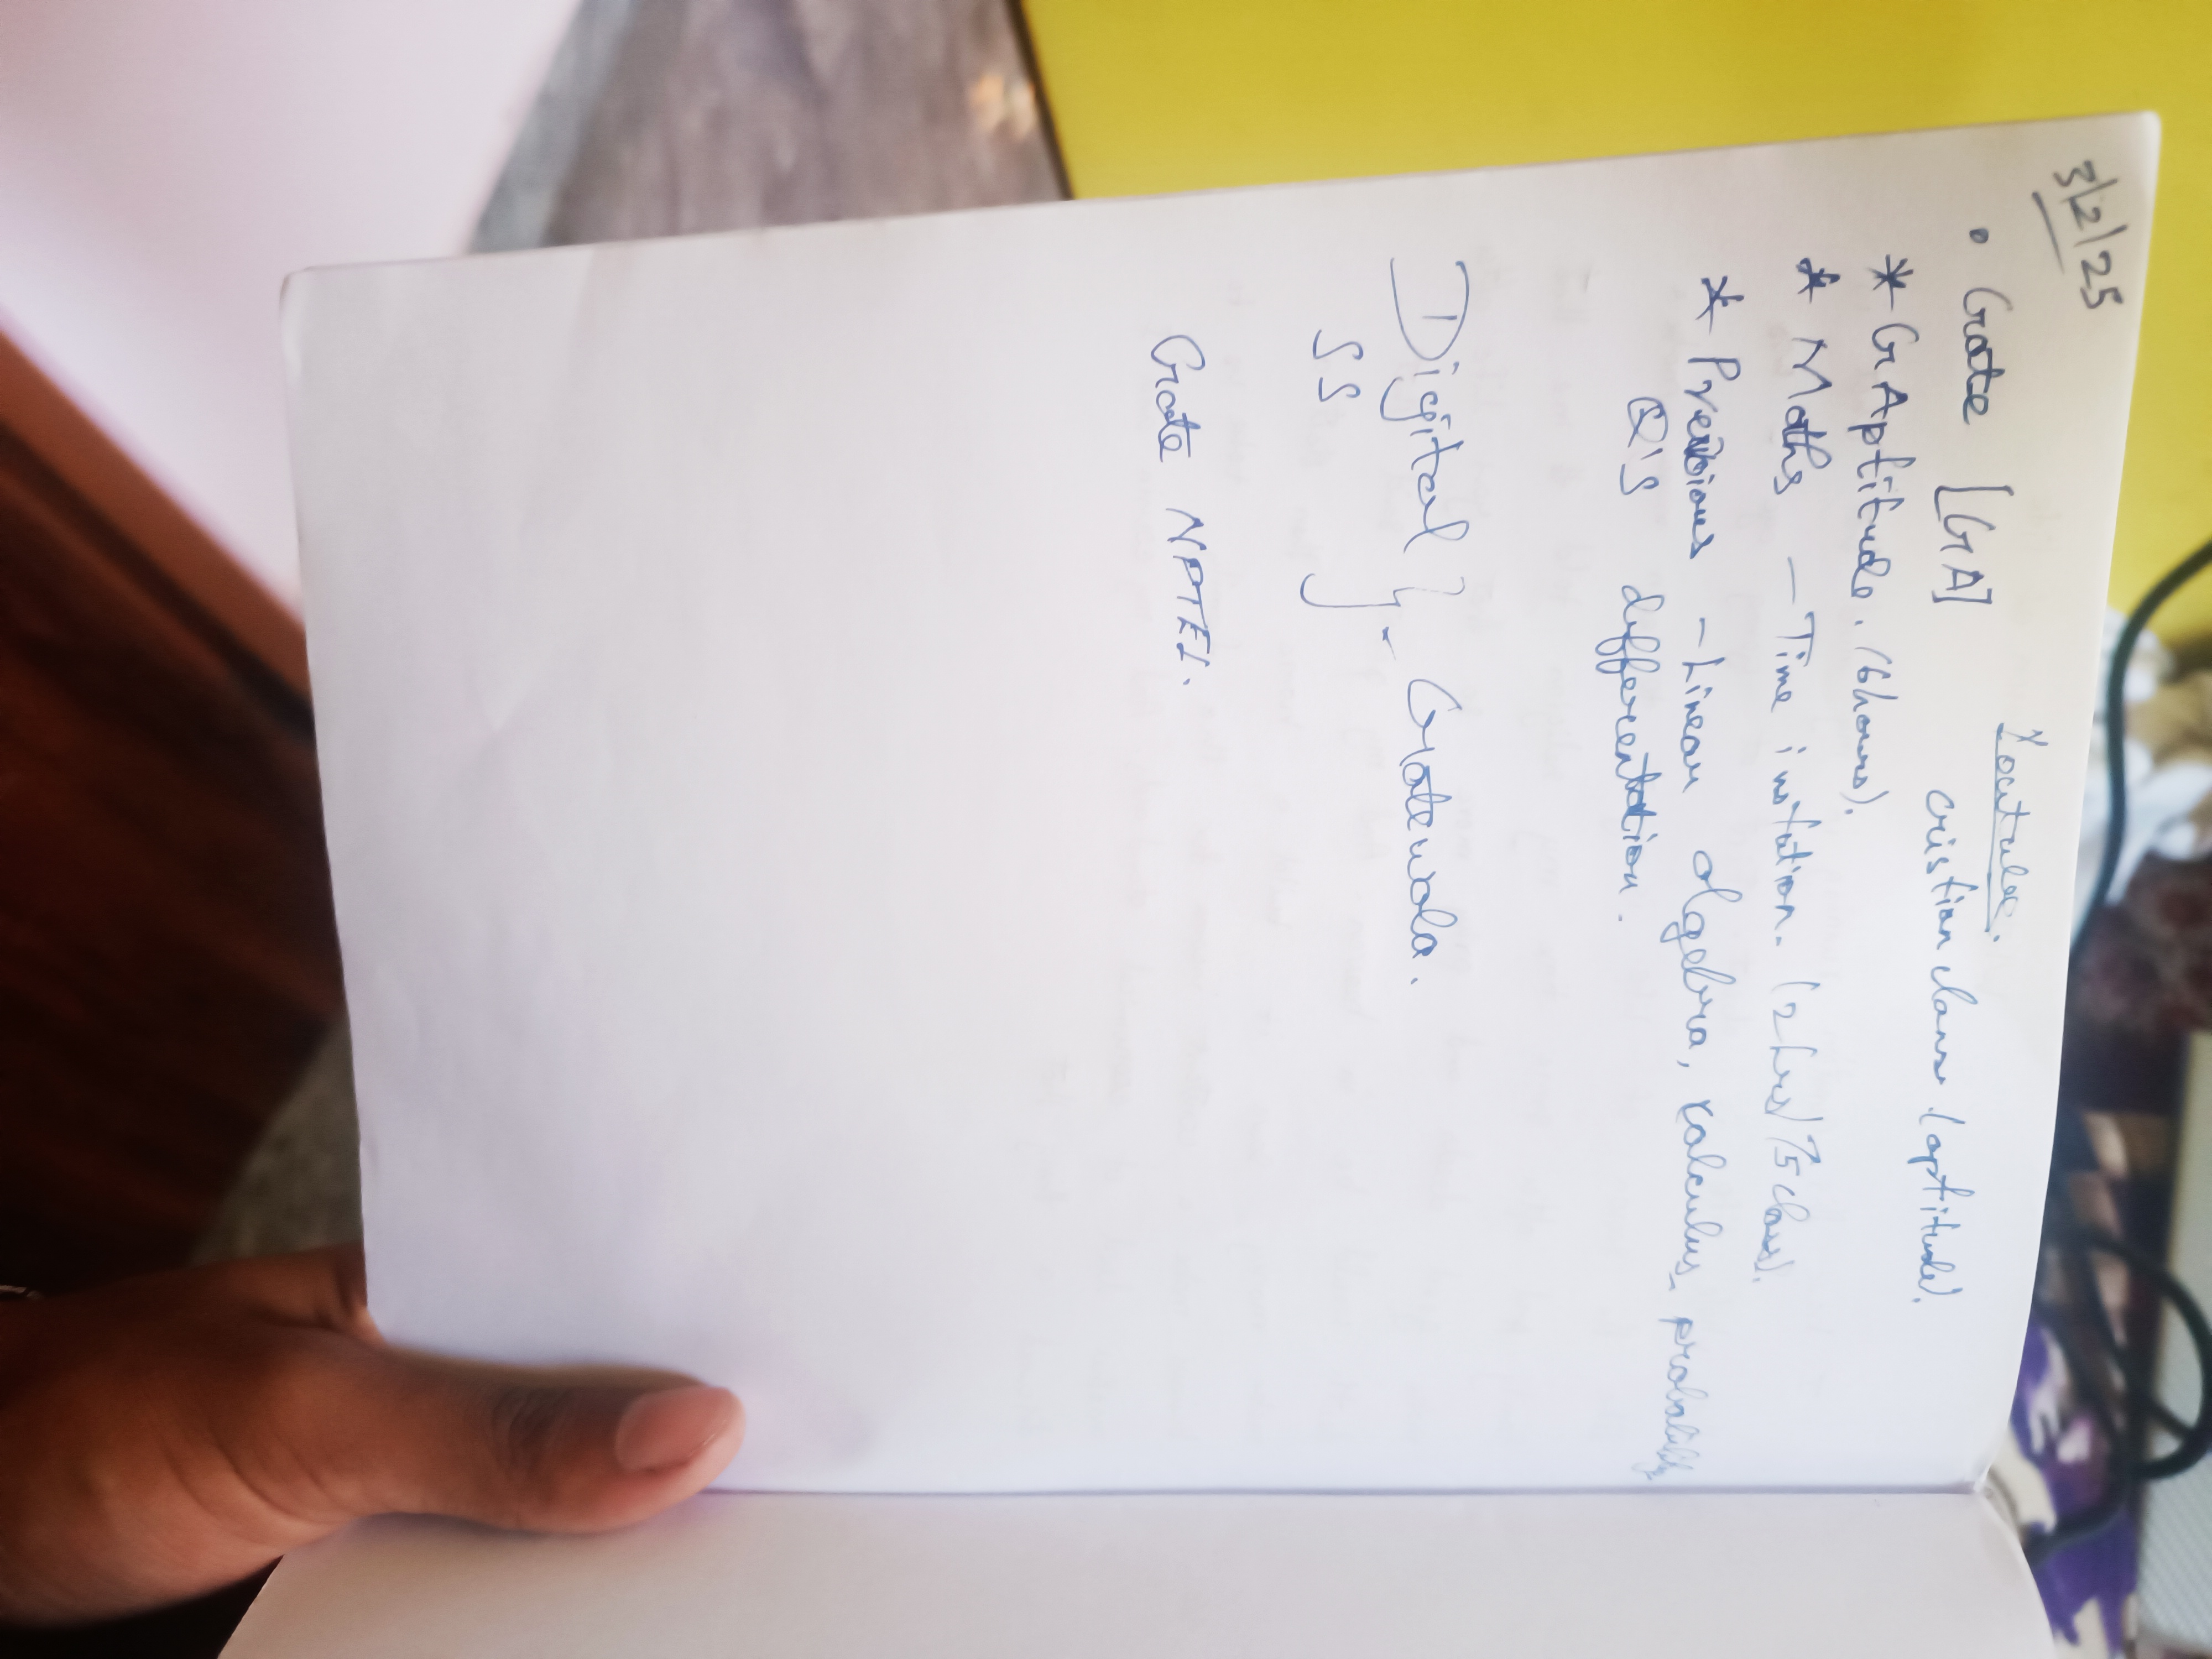 3/2/25
Youtube.
• Gate [GA] cristian class (aptitude).
* G Aptitude. (6hours).
* Maths - Time invotation. (2hrs/75class).
* Previous - Linear algebra, calculus, probability
Q's differentation.
Digital } - Gatewala.
SS
Gate NPTEL.